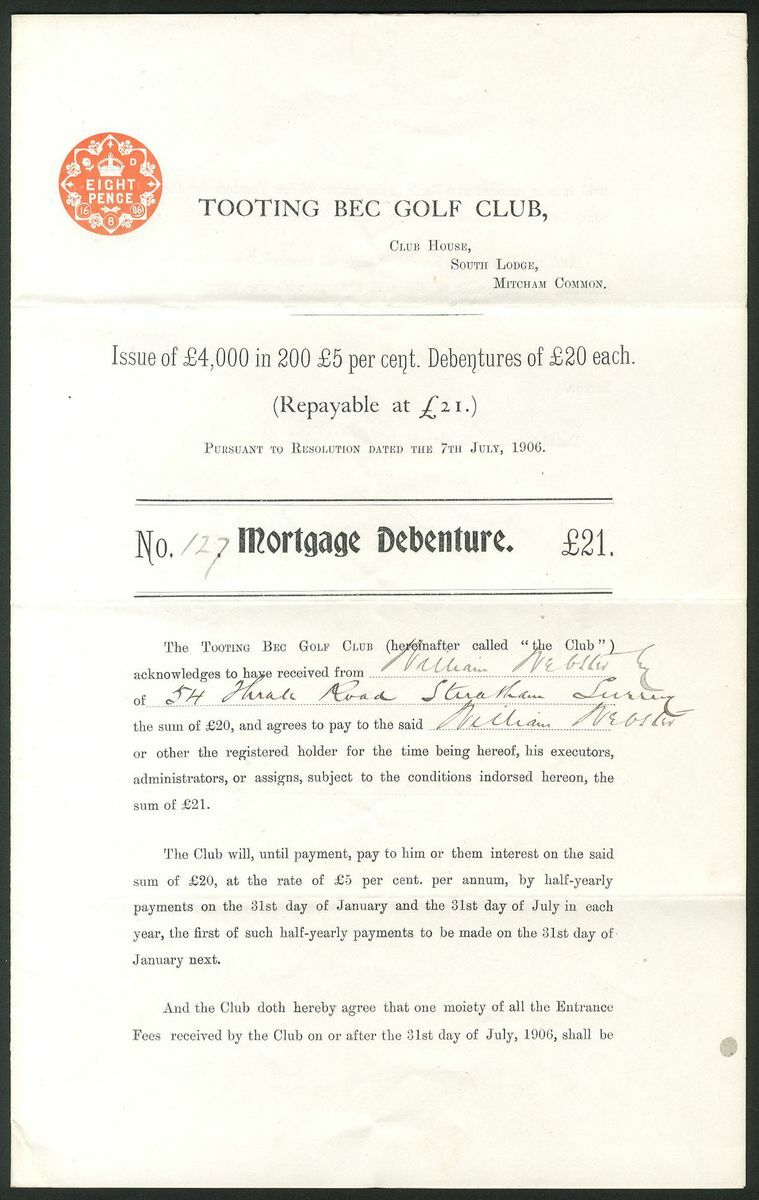 D
EIGHT
PENCE
16 06
8
TOOTING BEC GOLF CLUB,
CLUB HOUSE,
SOUTH LODGE,
MITCHAM COMMON.
Issue of £4,000 in 200 £5 per cent. Debentures of £20 each.
(Repayable at £21.)
PURSUANT TO RESOLUTION DATED THE 7TH JULY, 1906.
No. 127. Mortgage Debenture. £21.
The TOOTING BEC GOLF CLUB (hereinafter called "the Club")
acknowledges to have received from William Webster Esq
of 54 Thrale Road Streatham Surrey
the sum of £20, and agrees to pay to the said William Webster
or other the registered holder for the time being hereof, his executors,
administrators, or assigns, subject to the conditions indorsed hereon, the
sum of £21.
The Club will, until payment, pay to him or them interest on the said
sum of £20, at the rate of £5 per cent. per annum, by half-yearly
payments on the 31st day of January and the 31st day of July in each
year, the first of such half-yearly payments to be made on the 31st day of
January next.
And the Club doth hereby agree that one moiety of all the Entrance
Fees received by the Club on or after the 31st day of July, 1906, shall be